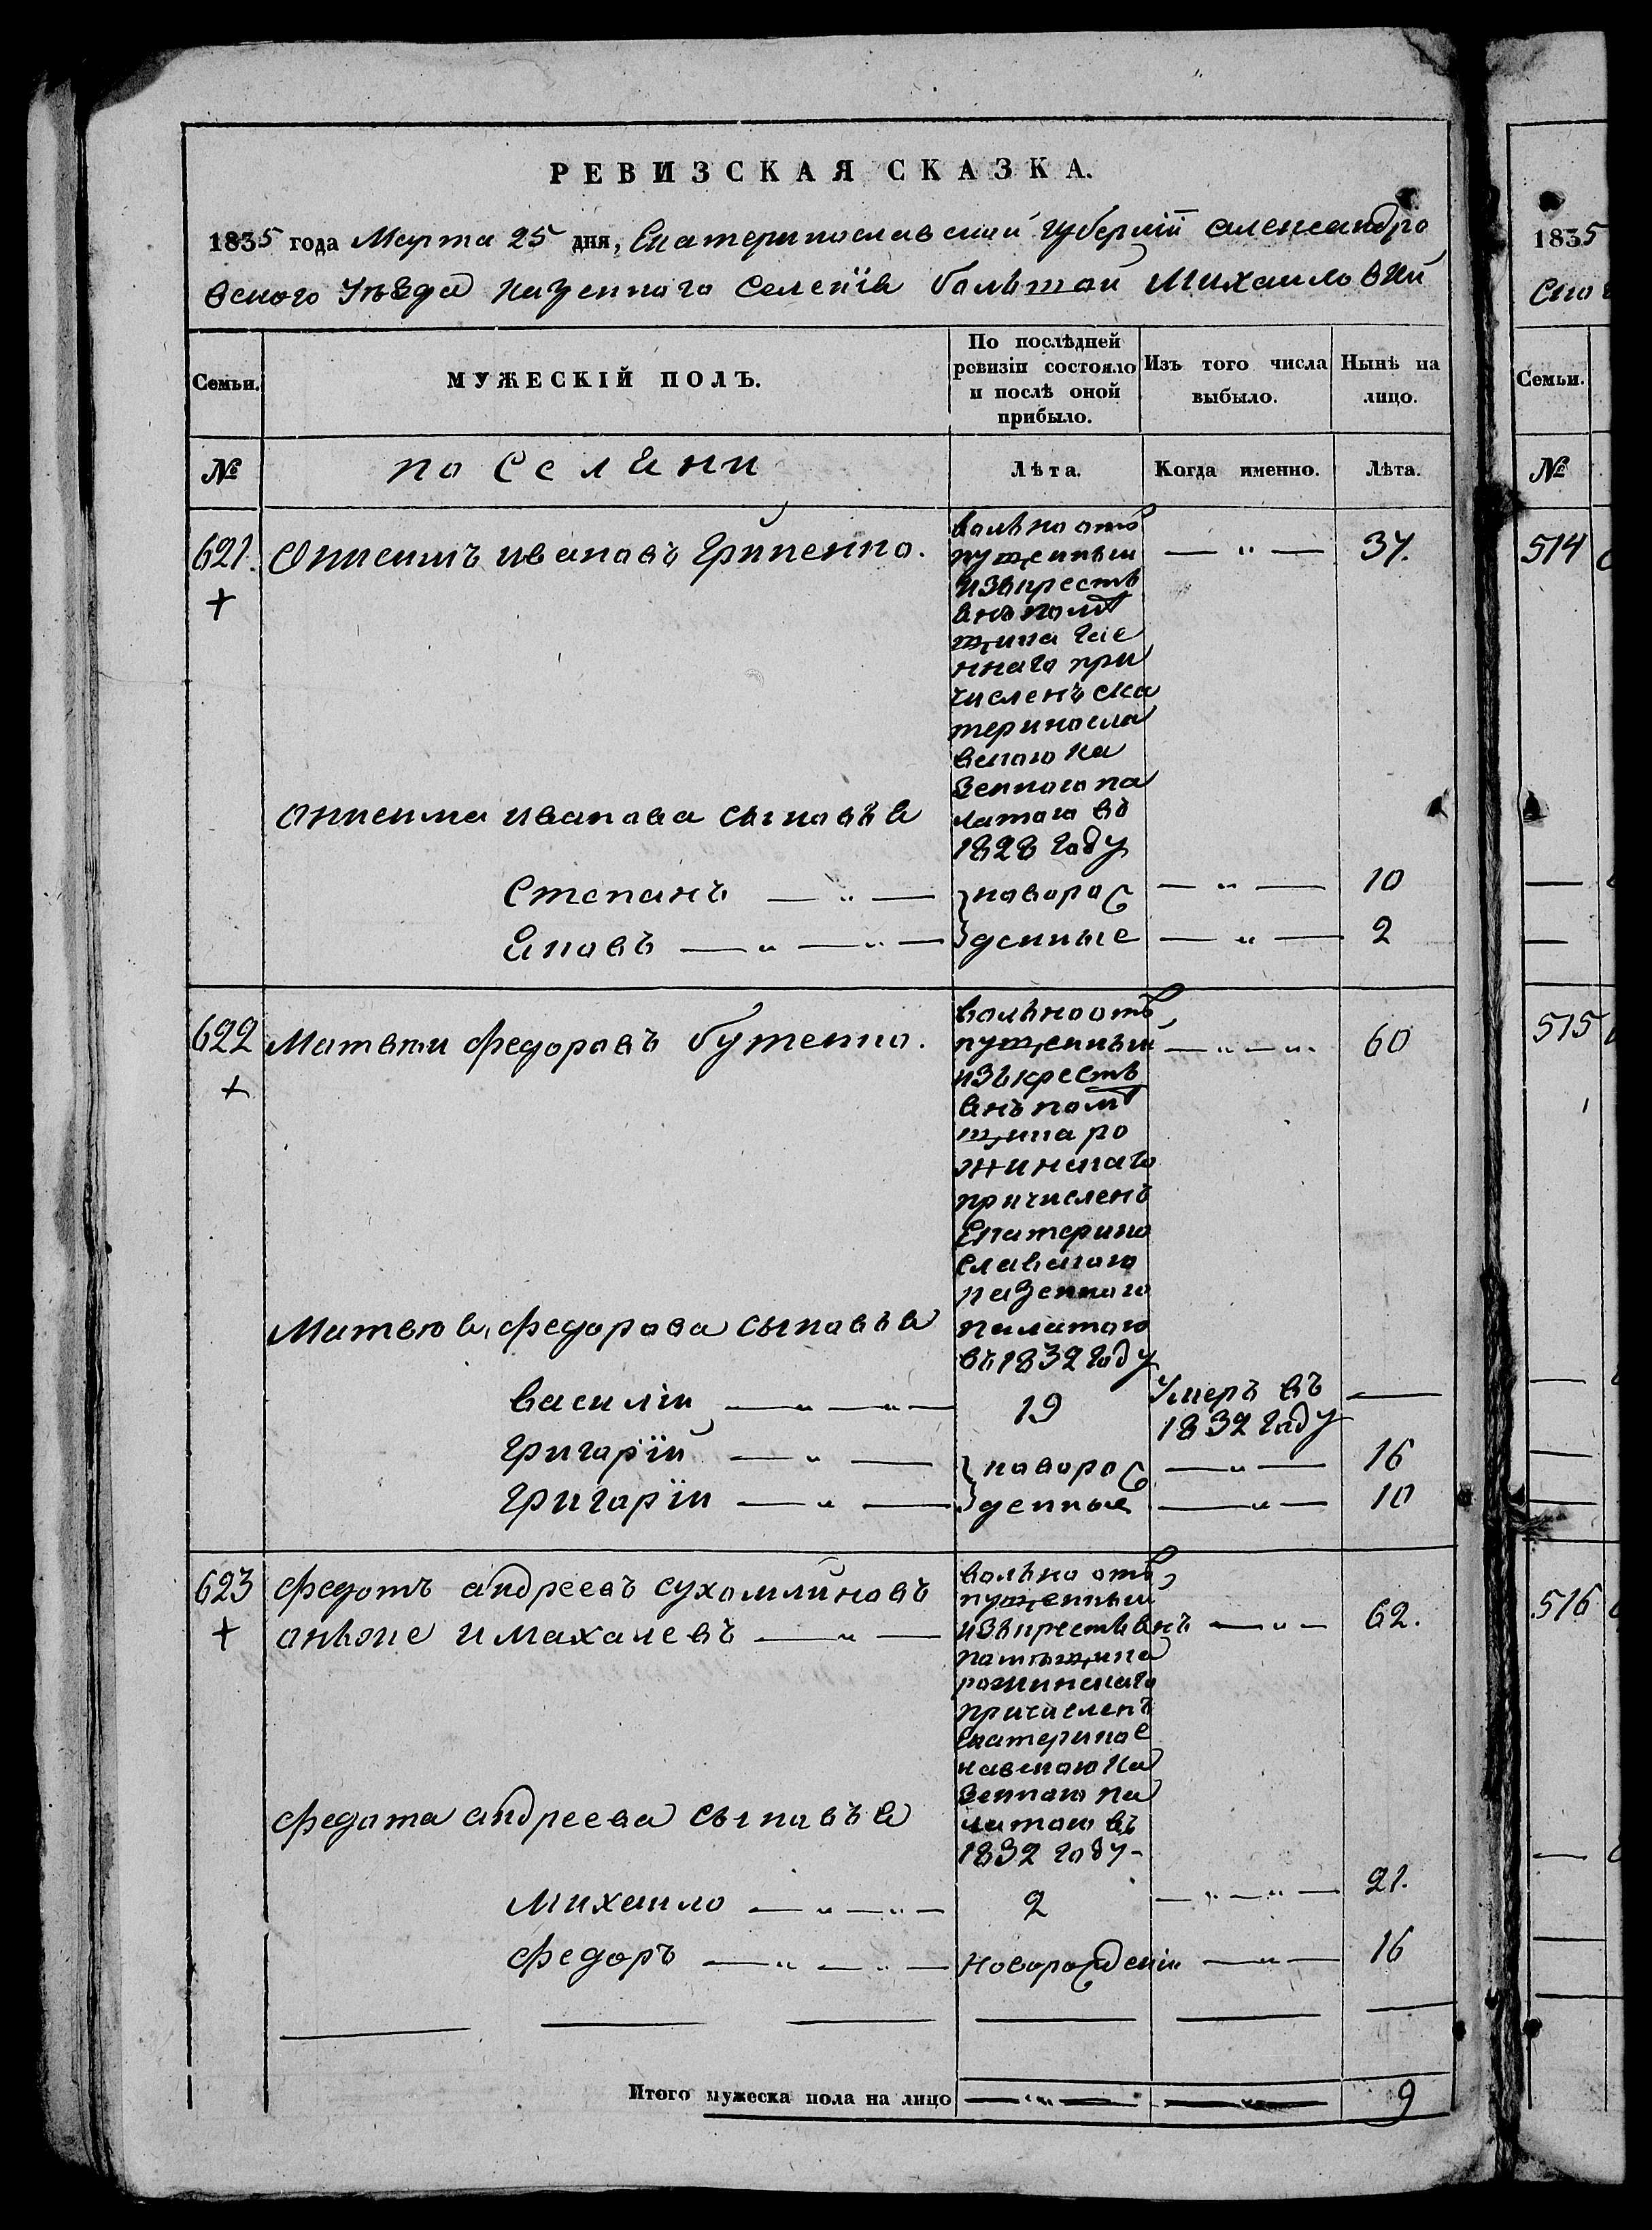 РЕВИЗСКАЯ СКАЗКА.
1835 года Марта 25 дня, Екатеринославской губернии александро
вского Уезда казенного селения больтой Михаиловки
Семьи.
МУЖЕСКІЙ ПОЛЪ.
По послѣдней ревизіи состояло и послѣ оной прибыло.
Изъ того числа выбыло.
Нынѣ на лицо.
№
по Селени
Лѣта.
Когда именно.
Лѣта.
621. Онисимъ ивановъ Грипенко. — " — 37.
+
вольноотъ
пущенныи
изъкрестъ
янъ помѣ
щика
ннаго при
численъ ека
териносла
вскою ка
зенною па
латою въ
1828 году
онисима иванова сыновья
Степанъ — " — }новорос — " — 10
Яковъ — " — " — }денные — " — 2
622 Матвѣи федоровъ бутенко. — " — ". 60
+
вольноотъ
пущенныи
изъкрестъ
янъ помѣ
щика ро
жинскаго
причисленъ
Екатерино
славскою
казенною
палатою
въ 1832 году
Матвея федорова сыновья
василіи — " — " — 19 Умеръ въ 1832 году —
Григаріи — " — }новорос — " — 16
Григаріи — " — }денные — " — 10
623 федотъ андреевъ сухомлиновъ
+ онъже имахалевъ — " — — " — 62.
вольно отъ
пущенныи
изъкрестьянъ
помѣщика
рожинскаго
причисленъ
Екатеринос
лавскою ка
зенною па
латою въ
1832 году-
федота андреева сыновья
Михаило — " — " — 2 — " — " — 21.
федоръ — " — " — новорожденіи — " — 16
Итого мужеска пола на лицо — " — — " — 9
1835
Семьи.
№
514
515
516